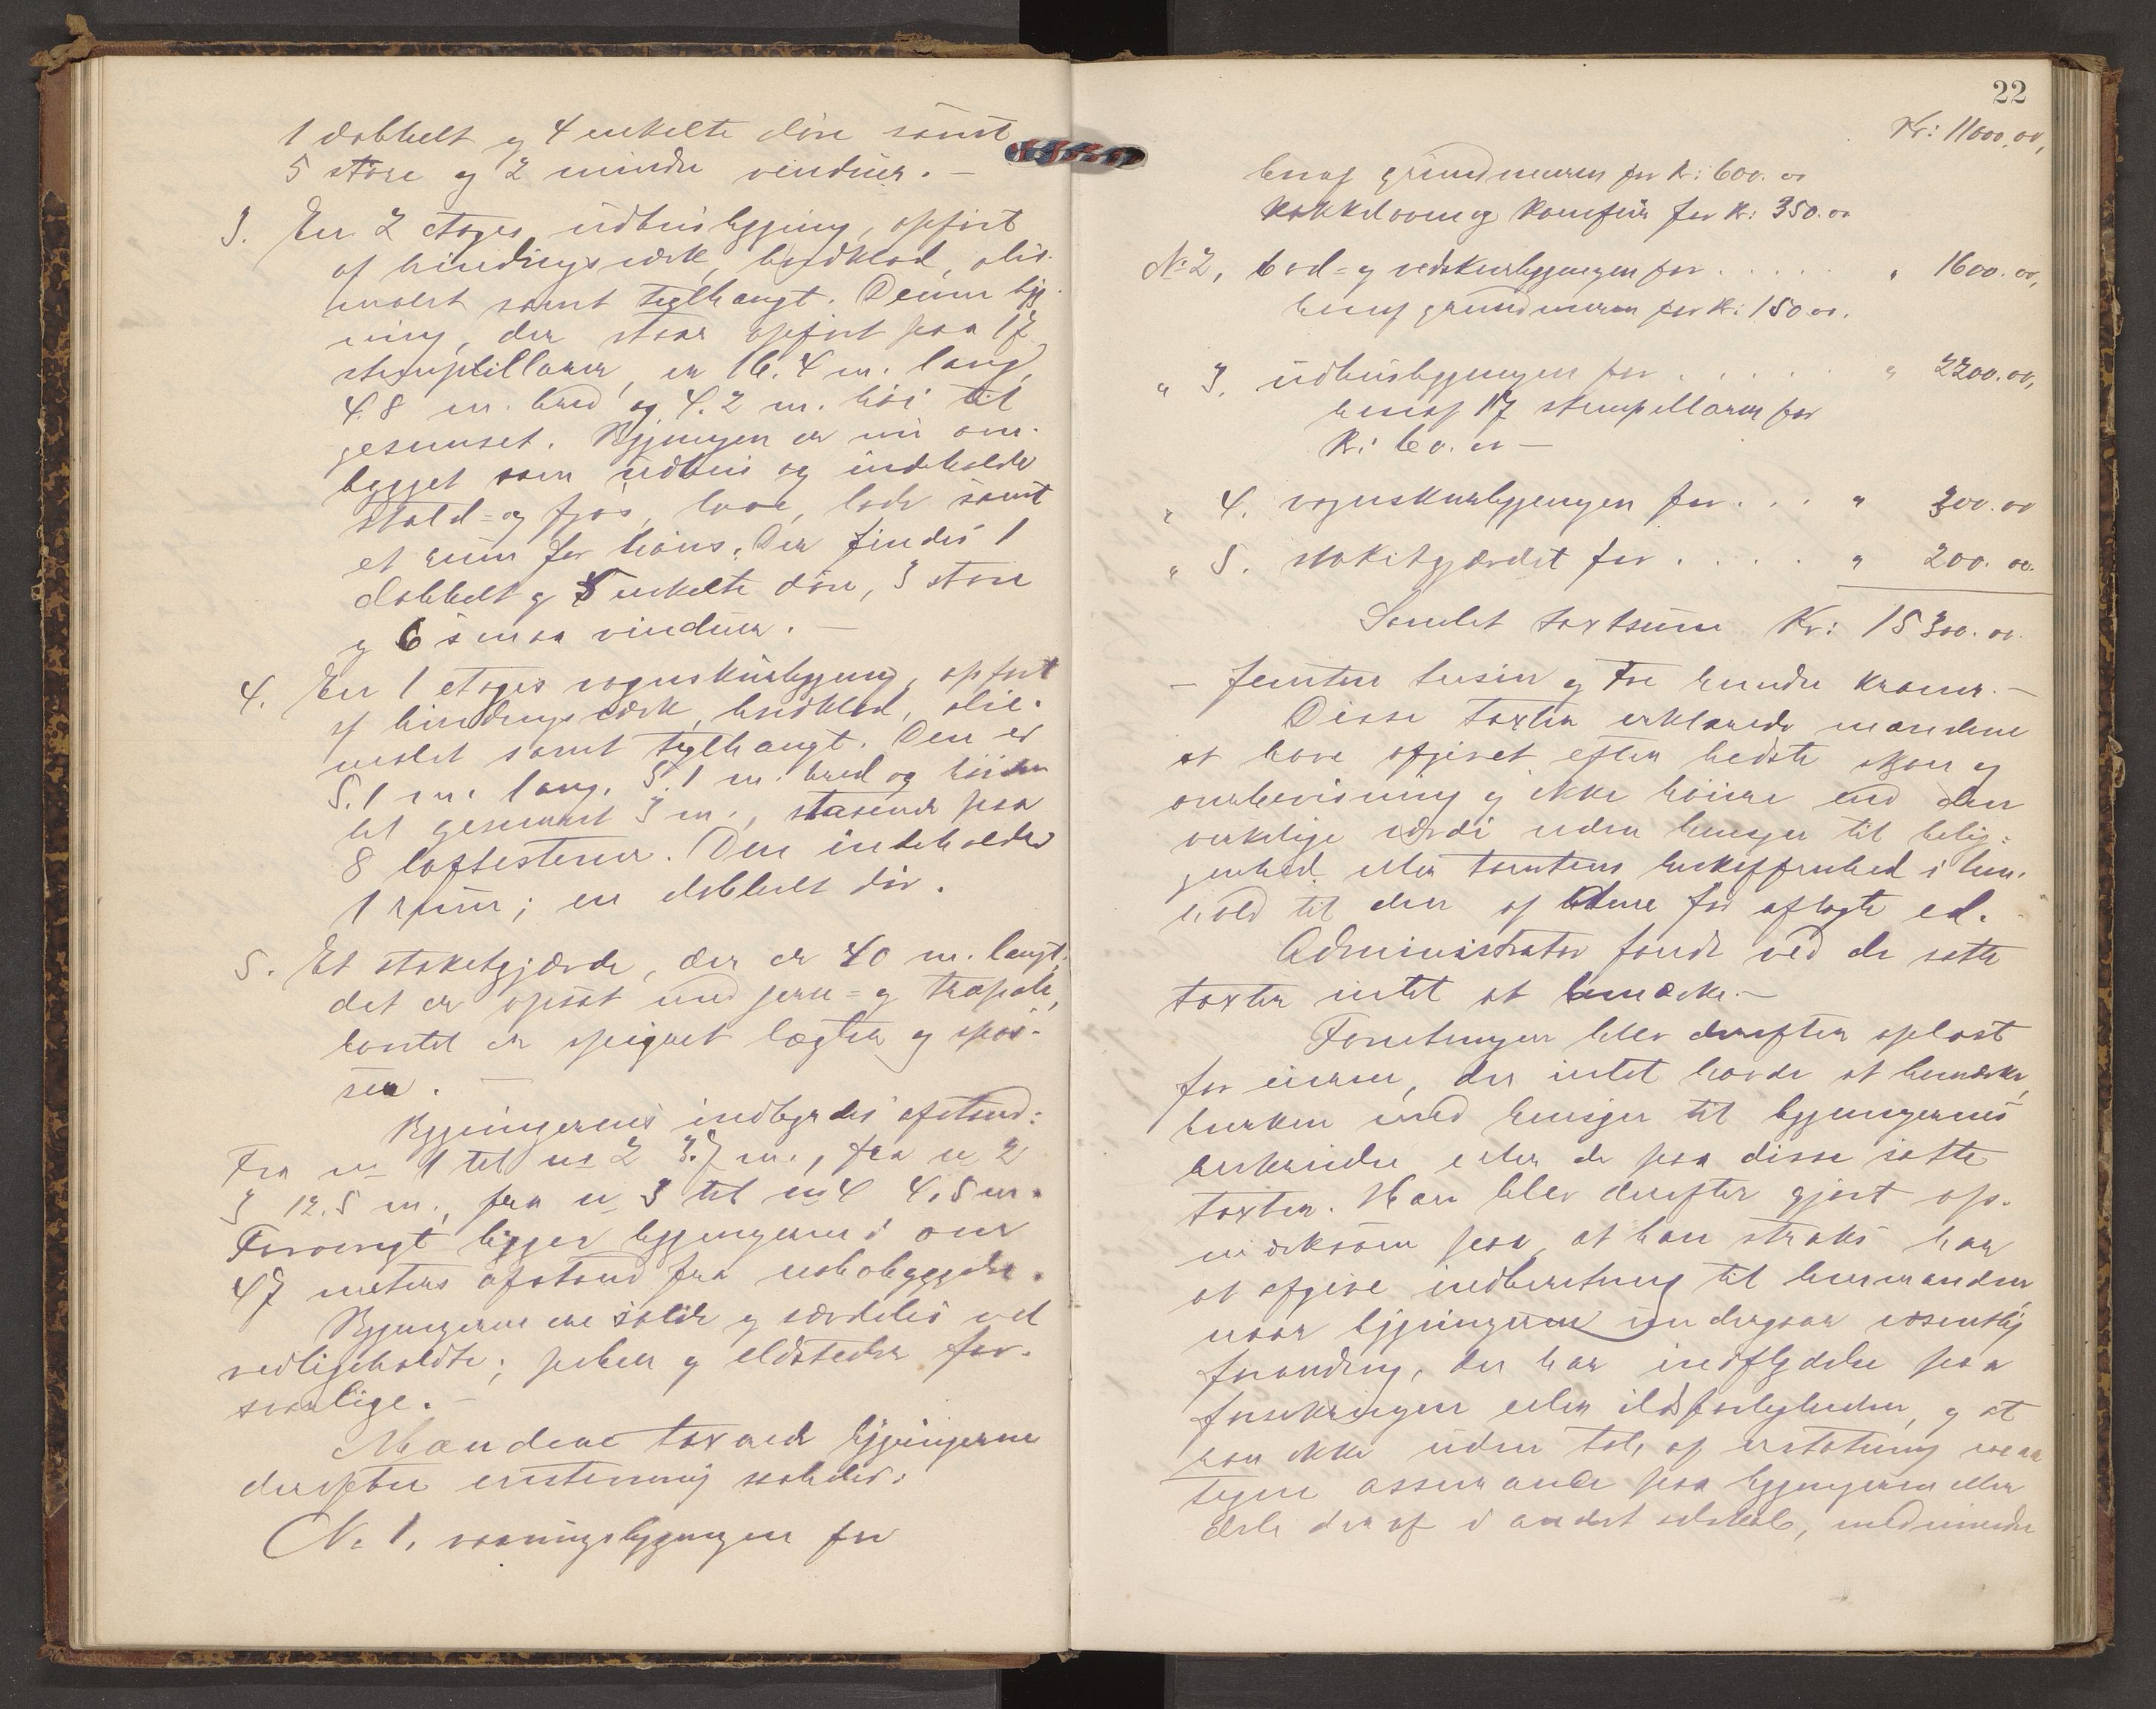 1 dobbelt og 4 enkelte döre samt
5 store og 2 mindre vinduer. —
3. En 2 etages udhusbygning, opfört
af bindingsværk, bordklæd, olie-
malet samt teglhængt. Denne byg-
ning, der staar opfört paa 17
stenpillarer, er 16.4 m. lang,
4.8 m. bred og 4.2 m. höi til
gesimset. Bygningen er nu om-
bygget som udhus og indeholder
stald- og fjös, laave, lade samt
et rum for höns. Der findes 1
dobbelt og 5 enkelte döre, 3 store
og 6 smaa vinduer. —
4. En 1 etages vognskurbygning, opfört
af bindingsværk, bordklæd, olie-
malet samt teglhængt. Den er
5.1 m. lang, 5.1 m. bred og höiden
til gesimset 3 m., staaende paa
8 löftestener. Den indeholder
1 rum; en dobbelt dör.
5. Et staketgjærde, der er 40 m. langt;
det er opsat med jern- og træpæle,
hvortil er spigret lægter og spös-
ser. —
Bygningernes indbyrdes afstand:
Fra no 1 til no 2 3.7 m., fra no 2
3 12.5 m., fra no 3 til no 4 4,5 m.
Forövrigt ligger bygningerne i over
47 meters afstand fra nabobyggelse.
Bygningerne ere solide og særdeles vel
vedligeholdte; piber og ildsteder for-
svarlige. —
Mændene taxerede bygningerne
derefter enstemmig saaledes:
No 1, vaaningsbygningen for
22
Kr: 11000,00,
heraf grundmuren for Kr: 600.00
kakkelovne og komfur for Kr: 350.00
No 2, bod- og vedskurbygningen for . . . . . " 1600.00,
heraf grundmuren for Kr: 150 00.
" 3, udhusbygningen for . . . . . " 2200.00,
heraf 17 stenpillarer for
Kr: 60.00 —
" 4. vognskurbygningen for . . . " 300.00
" 5. staketgjærdet for . . . . " 200.00.
Samlet taxtsum Kr: 15300.00.
— femten tusin og tre hundre kroner. —
Disse taxter erklærede mændene
at have afgivet efter bedste skjön og
overbevisning og ikke höiere end den
verkelige værdi uden hensyn til belig-
genhed eller tomtens beskaffenhed i hen-
hold til den af dem för aflagte ed.
Administrator fandt ved de satte
taxter intet at bemærke. —
Forretningen blev derefter oplæst
for eieren, der intet havde at bemærke,
hverken med hensyn til bygningernes
beskrivelse eller de paa disse satte
taxter. Han blev derefter gjort op-
mærksom paa, at han straks har
at afgive indberetning til lensmanden
naar bygningerne undergaar væsentlig
forandring, der har indflydelse paa
forsikringen eller ildsfarligheden, og at
han ikke uden tab af erstatning maa
tegne assurance paa bygningerne eller
dele deraf i andet selskab, medmindre